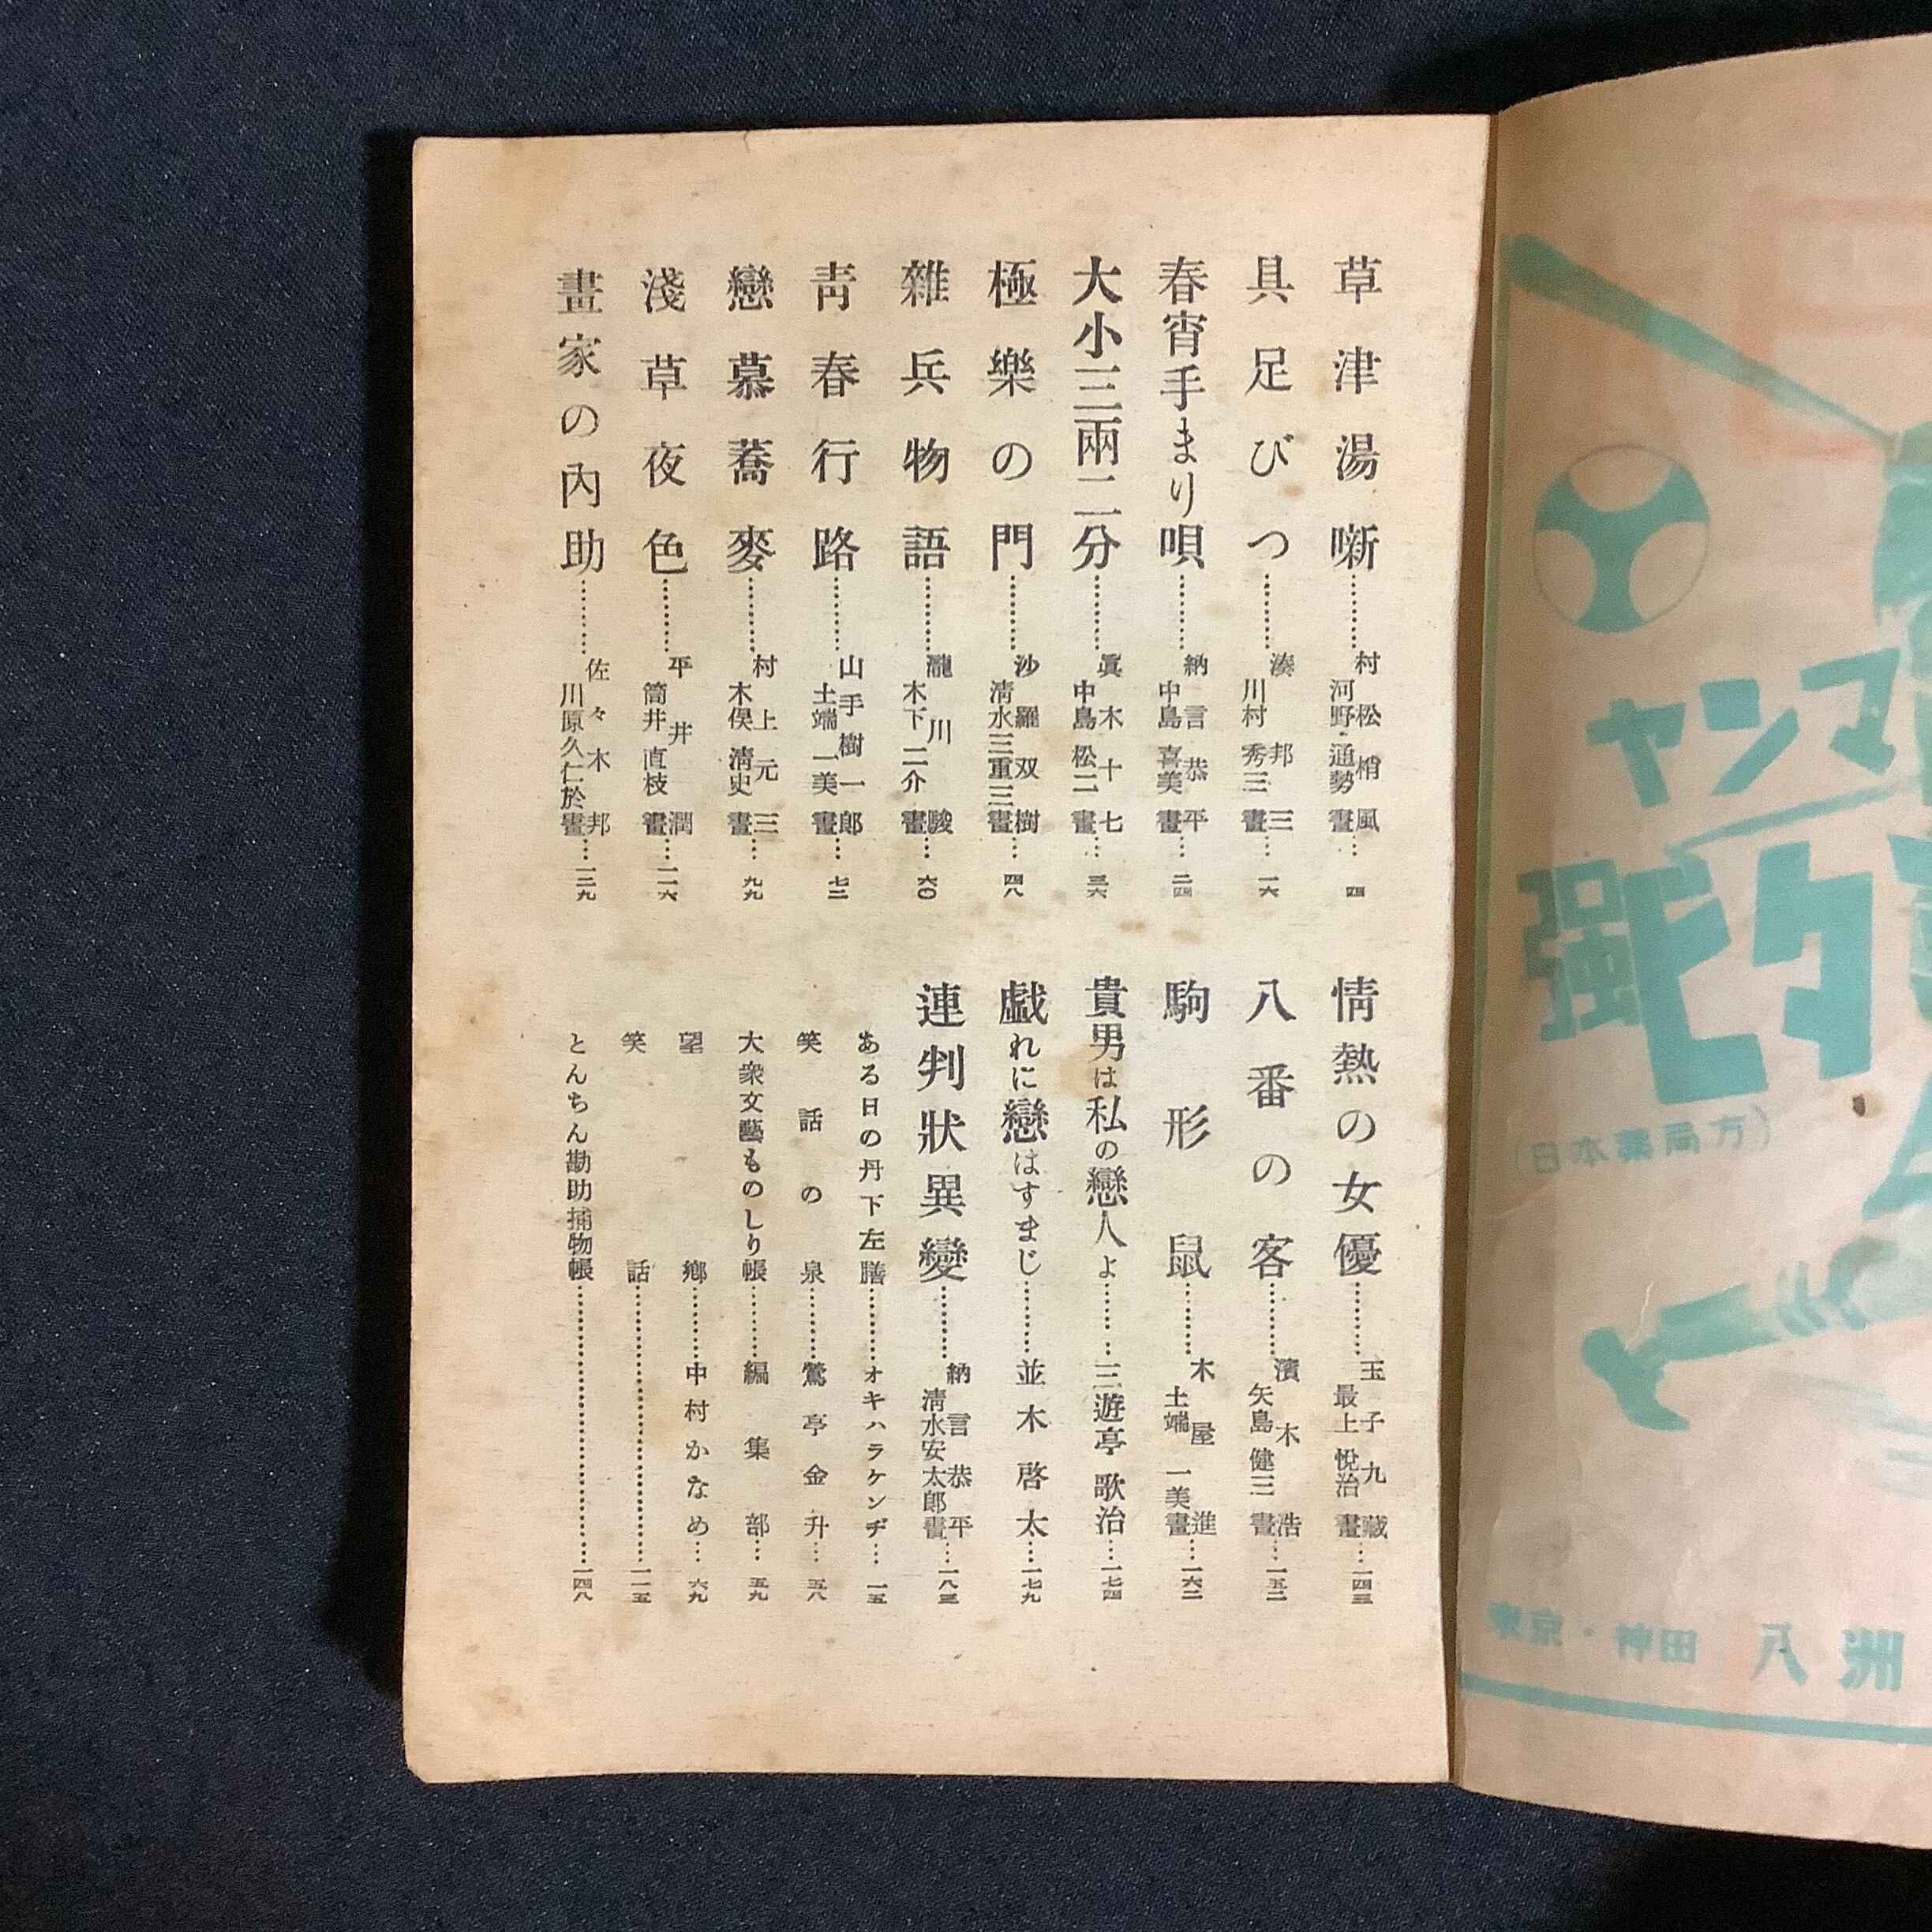 草津湯噺………村松梢風 河野通勢畫…四
具足びつ………湊邦三 川村秀三畫…一六
春宵手まり唄………納言恭平 中島喜美畫…二四
大小三兩二分………眞木十七 中島松二畫…三六
極樂の門………沙羅双樹 淸水三重三畫…四八
雜兵物語………瀧川駿 木下二介畫…六〇
靑春行路………山手樹一郎 土端一美畫…七二
戀慕蕎麥………村上元三 木俣淸史畫…九九
淺草夜色………平井潤 筒井直枝畫…一一六
畫家の內助………佐々木邦 川原久仁於畫…一二九
情熱の女優………玉子九藏 最上悅治畫…一四三
八番の客………濱木浩 矢島健三畫…一五二
駒形鼠………木屋進 土端一美畫…一六二
貴男は私の戀人よ………三遊亭歌治…一七四
戯れに戀はすまじ………並木啓太…一七九
連判狀異變………納言恭平 淸水安太郎畫…一八三
ある日の丹下左膳………オキハラケンヂ…一五
笑話の泉………鶯亭金升…五八
大衆文藝ものしり帳………編集部…五九
望鄕………中村かなめ…六九
笑話………一一五
とんちん勘助捕物帳………一四八
ヤンマ
強モク
(日本薬局方)
東京・神田 八洲